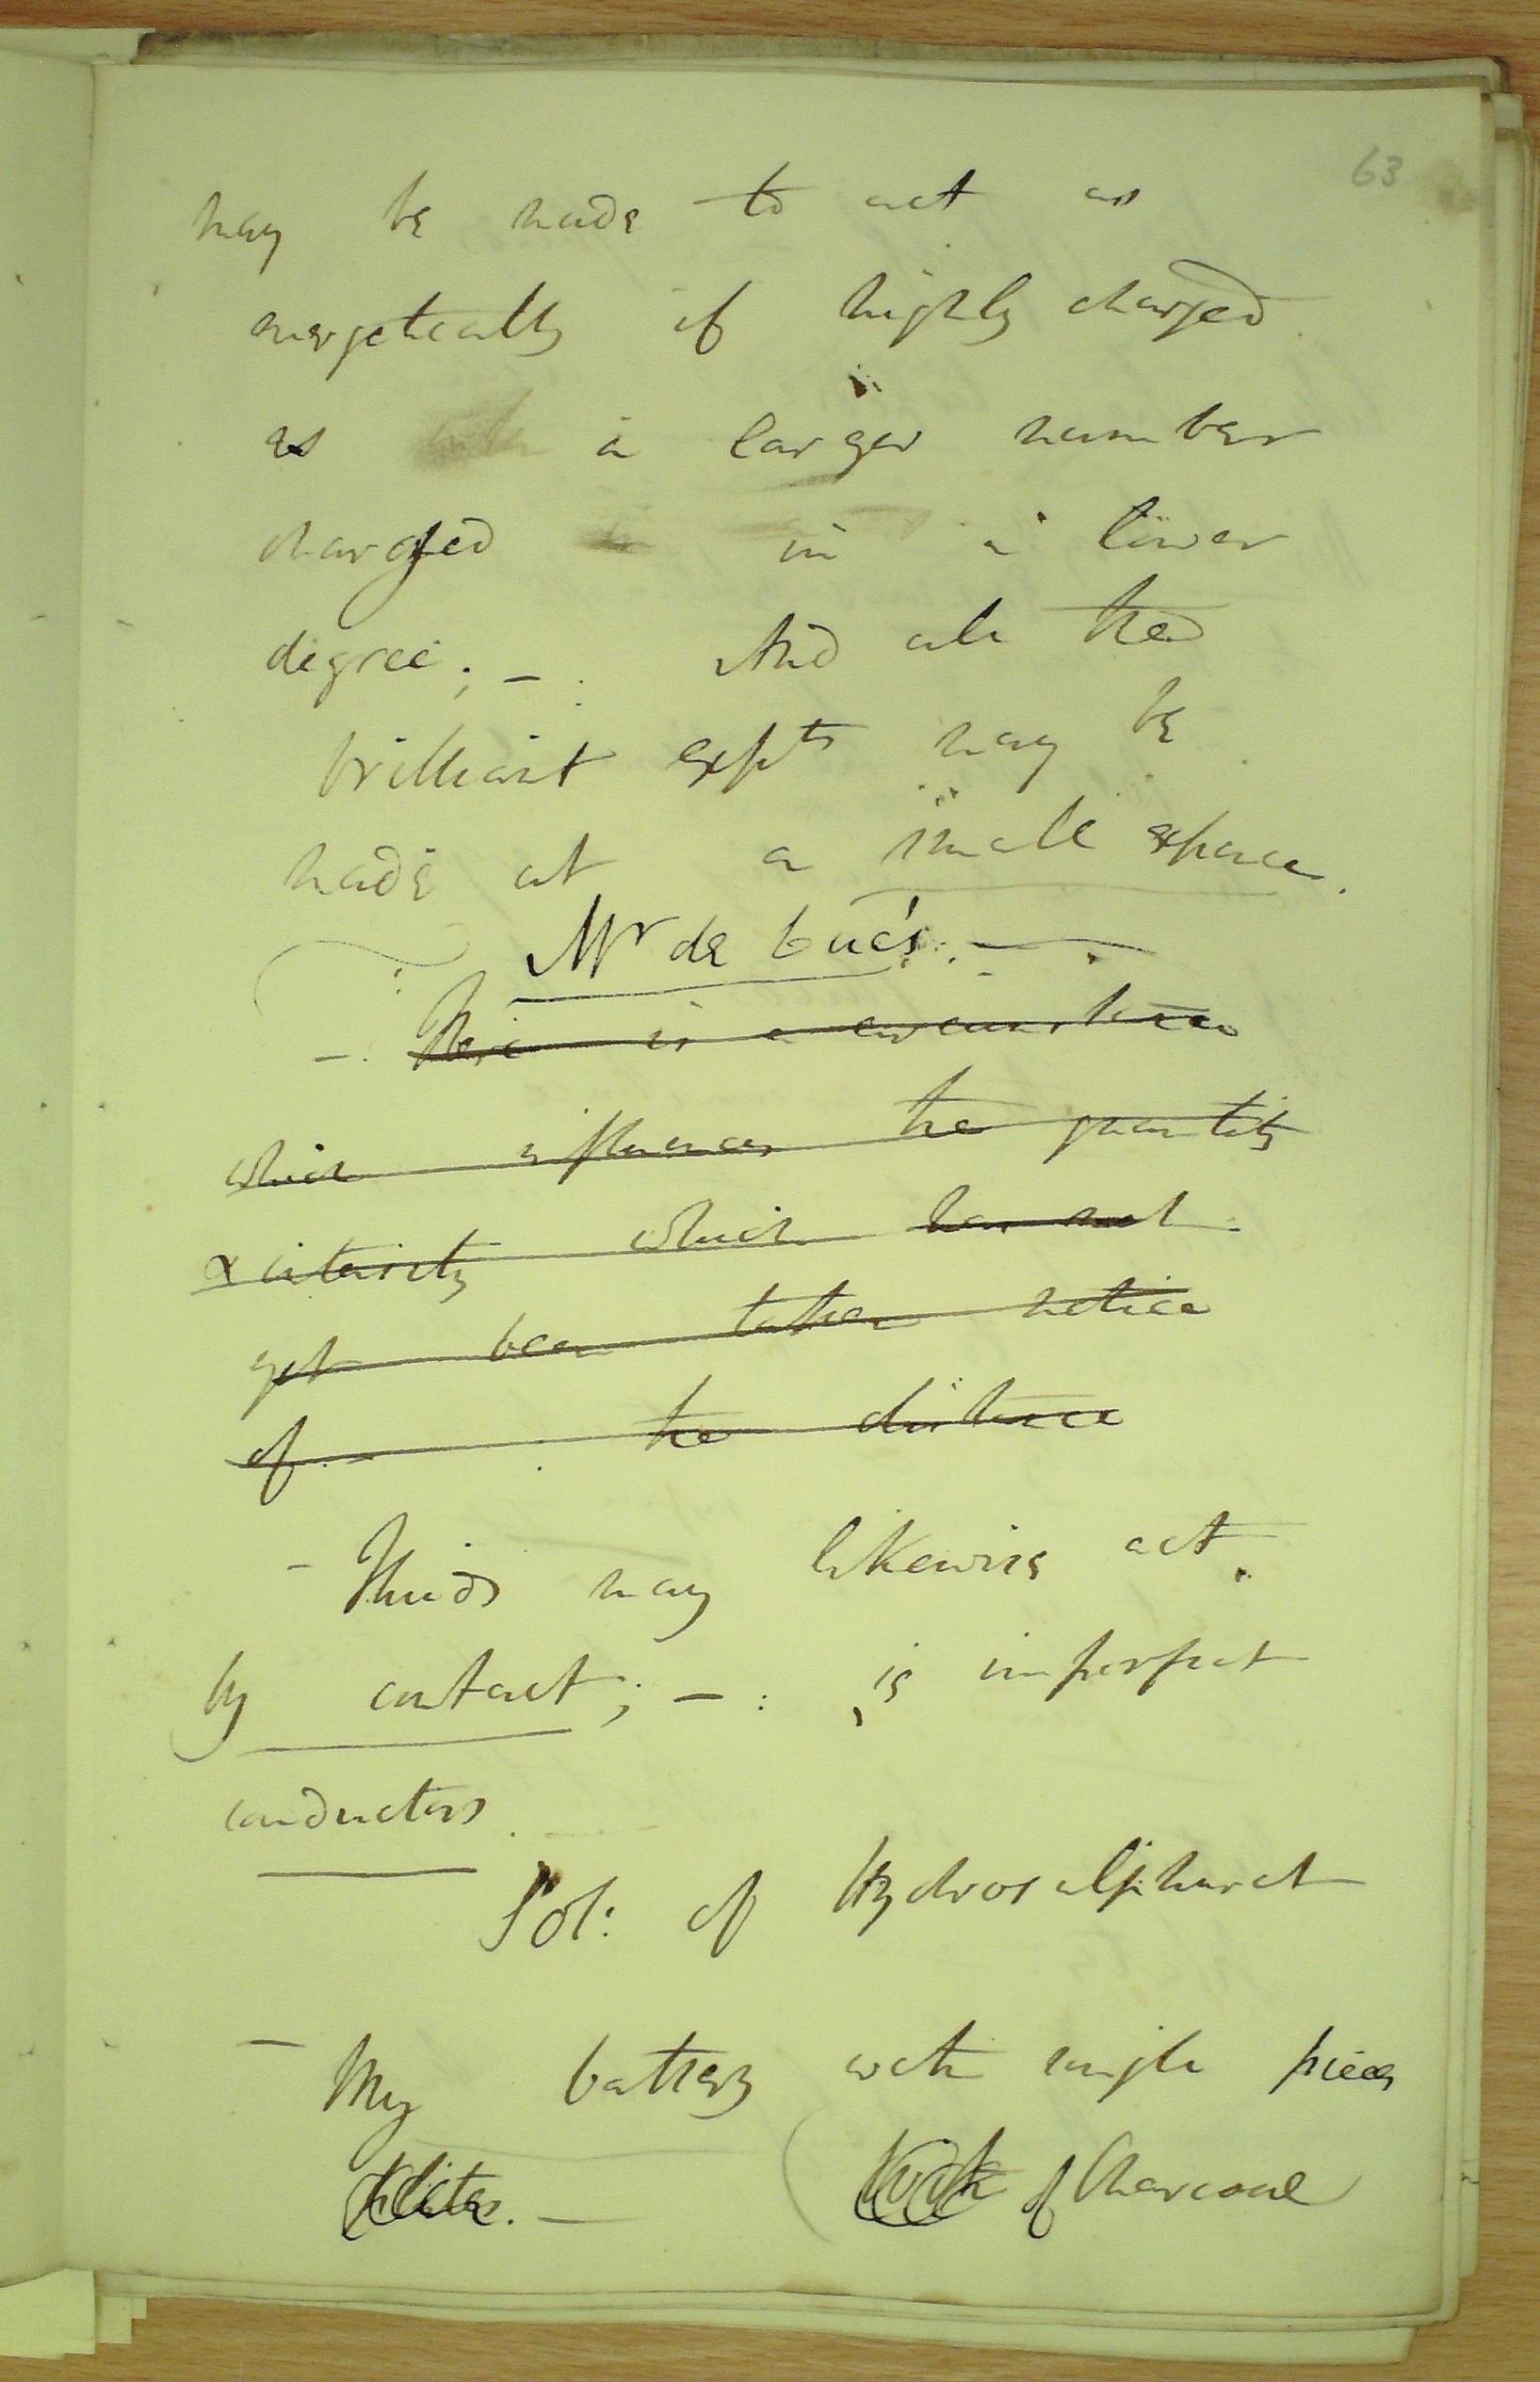 63
may be made to act as
energetically if highly charged
as a larger number
charged in a lower
degree; –. And all the
brilliant expts may be
made at a small expence.
Mr de Luc's. –
–. There is a circumstance
which influences the quantity
& intensity which has not
yet been taken notice
of. – the distance
– Fluids may likewise act
by contact; –: is imperfect
conductors.
Sol: of Hydrosulphuret
– My battery with single pieces
of Charcoal